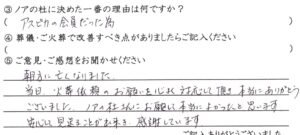 ③ノアの杜に決めた一番の理由は何ですか？
( アスピカの会員だった為
④葬儀・ご火葬で改善すべき点がありましたらご記入ください
(
⑤ご意見・ご感想をお聞かせください
朝方に亡くなりました。
当日、火葬依頼のお願いを心れ対応して頂き本当にありがとう
ございました。ノアの杜さんにお願いして本当によかったと思います
安心して見送ることが出来、感謝しています
ご記入ありがとうございました